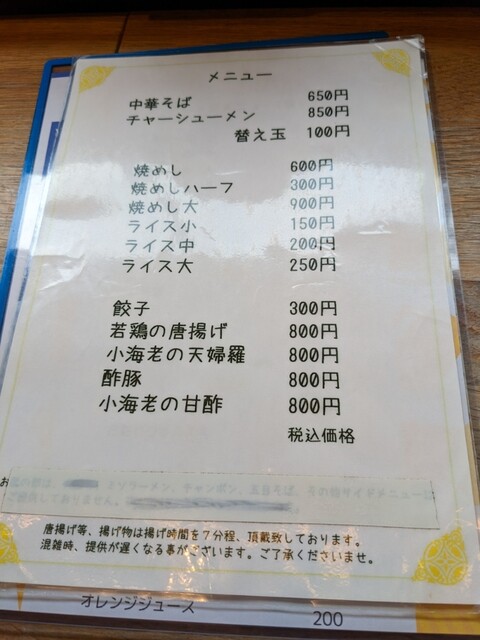 メニュー
中華そば 650円
チャーシューメン 850円
替え玉 100円
焼めし 600円
焼めしハーフ 300円
焼めし大 900円
ライス小 150円
ライス中 200円
ライス大 250円
餃子 300円
若鶏の唐揚げ 800円
小海老の天婦羅 800円
酢豚 800円
小海老の甘酢 800円
税込価格
ミソラーメン、チャンポン、五目そば、その他サイドメニューは
ご提供しておりません。
唐揚げ等、揚げ物は揚げ時間を7分程、頂戴致しております。
混雑時、提供が遅くなる事がございます。ご了承くださいませ。
オレンジジュース 200